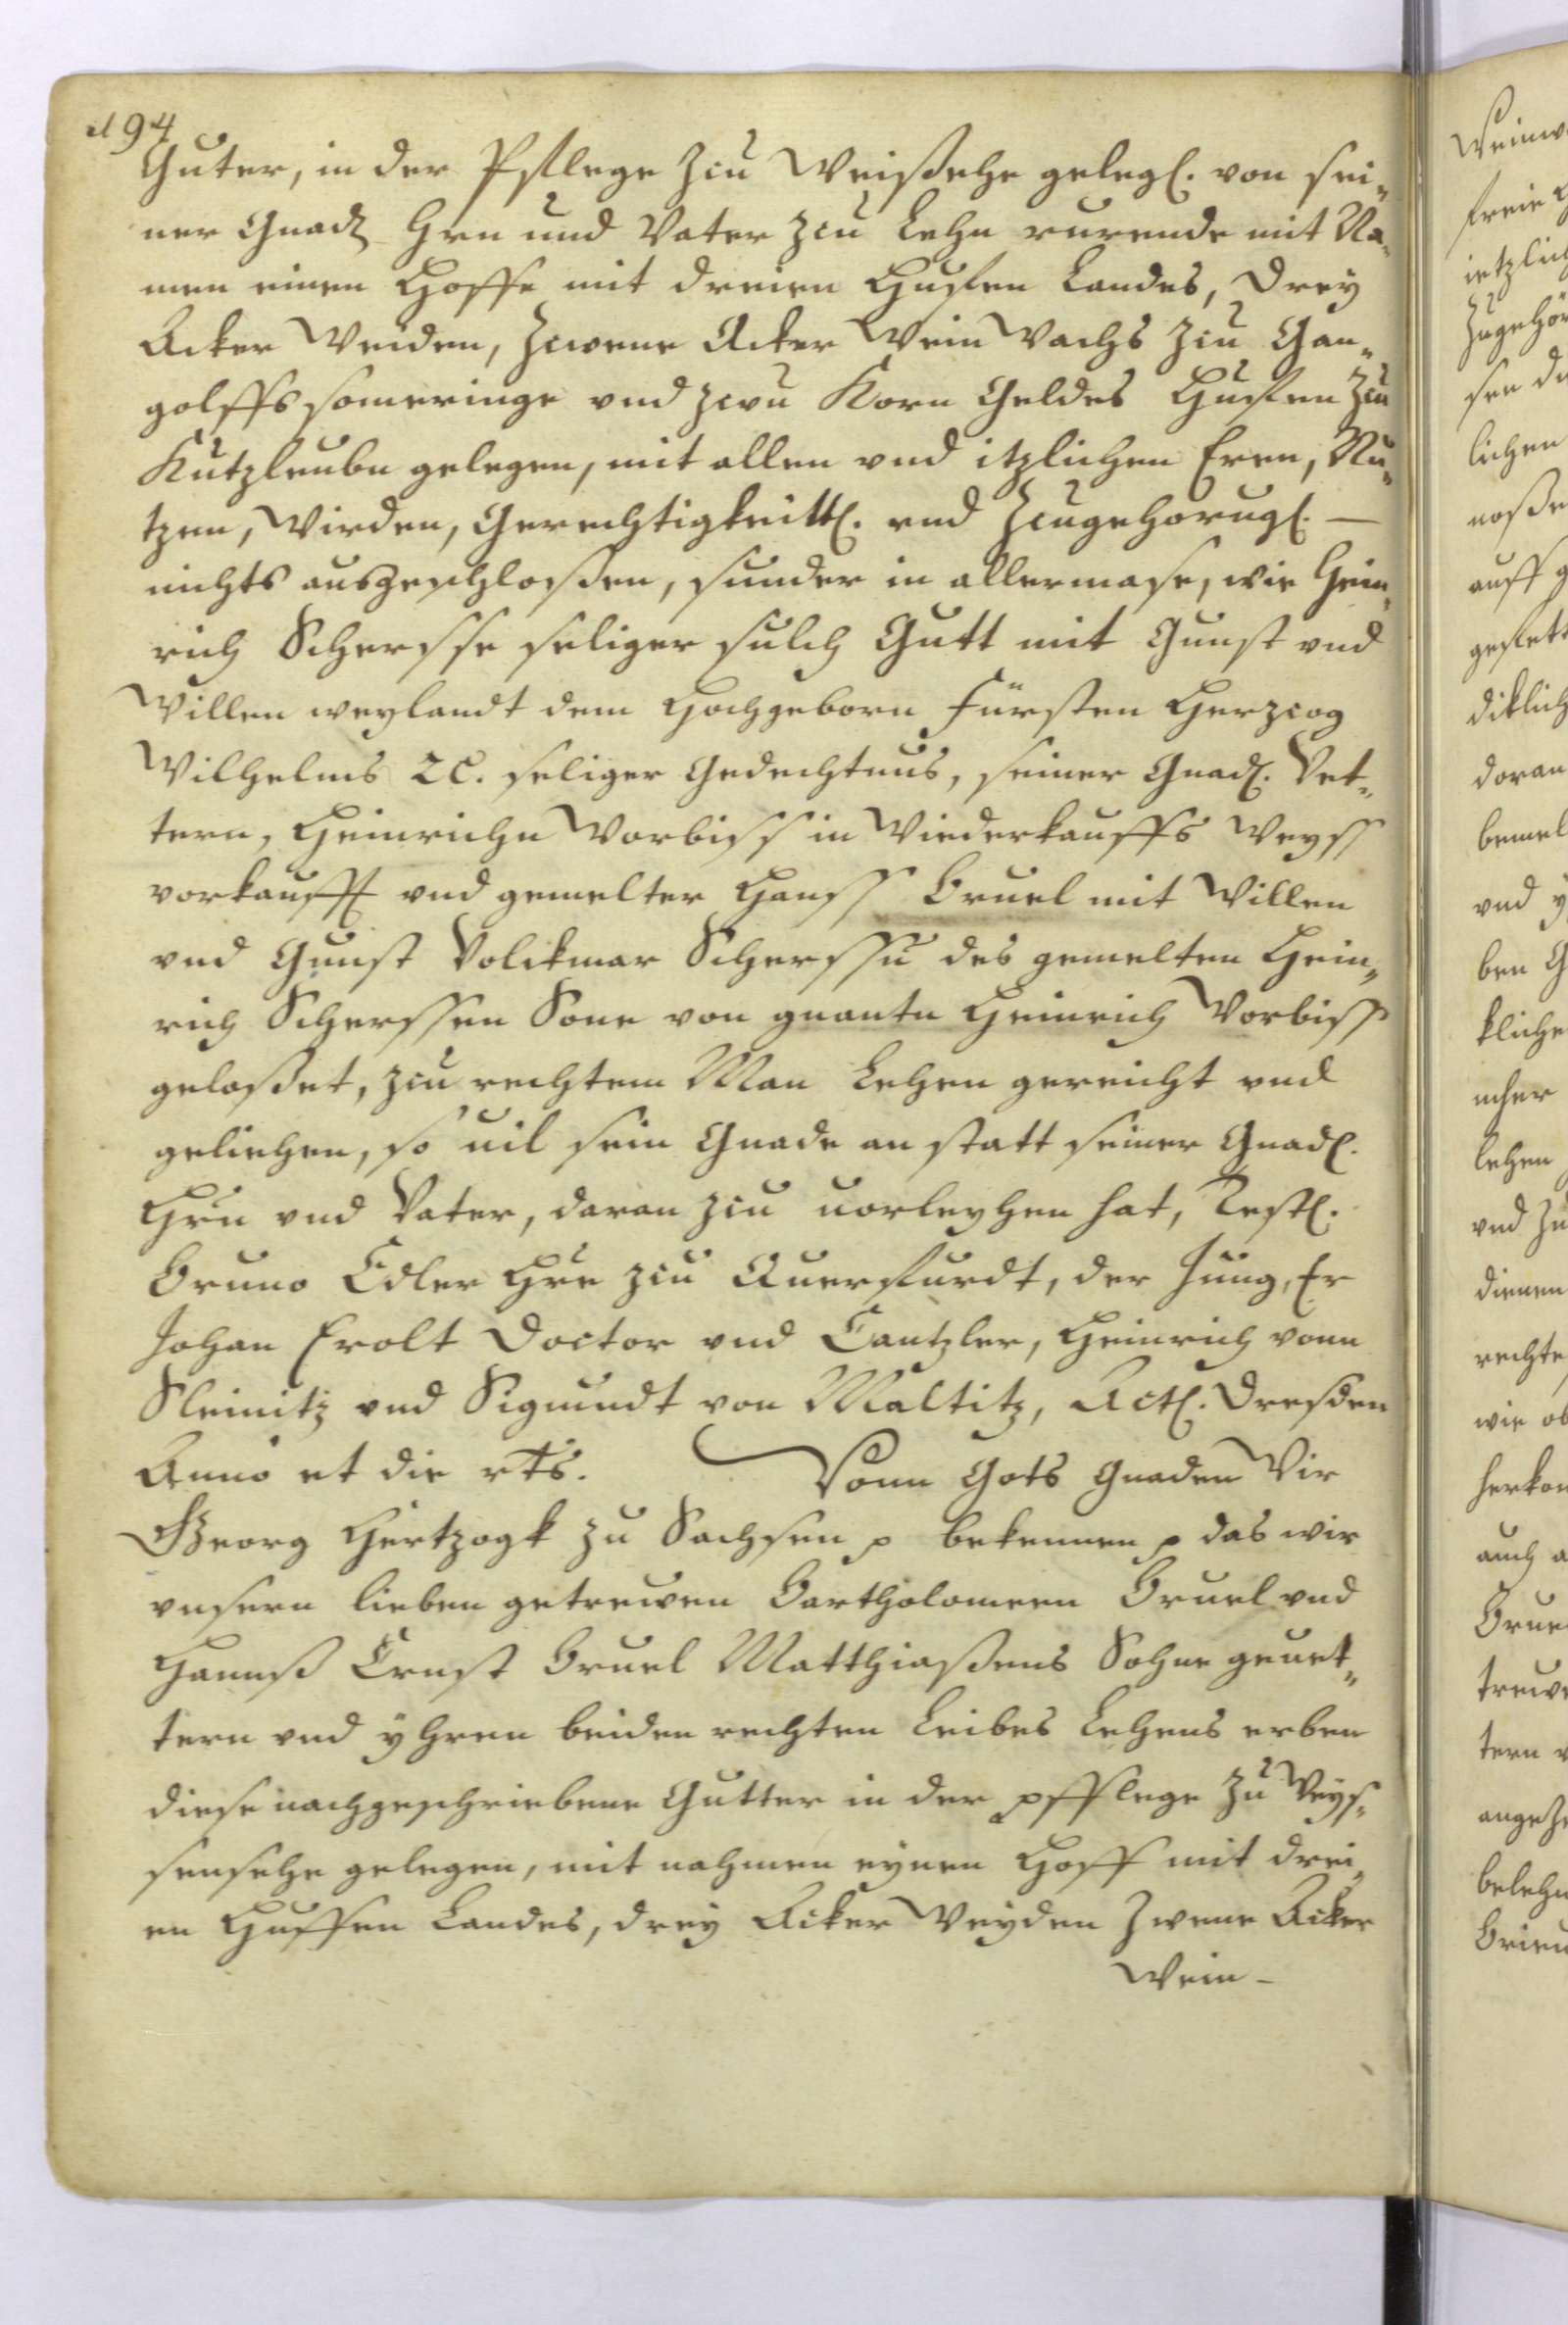 194
Guter, in der Pflege zcu Weißehe gelegℓ. von sei„
ner Gnadℓ Hrn und Vater zcu Lehn rurende mit Na„
men einen Hoffe mit dreien Hufen Landes, Drey
Acker Weiden, zcwene Acker Wein Wachs zcu Gan„
golffs someringe vnd zcwu Korn Geldes Hufen zcu
Kutzleubn gelegen, mit allen vnd itzlichen Eren, Nu„
tzen, Wirden, Gerechtigkeittℓ. vnd Zcugehorugℓ. —
nichts ausgeschloßen, sunder in allermase, wie Hein„
rich Schersse seliger sulch Gutt mit Gunst vnd
Willen weylandt dem Hochgeborn Fürsten Herzcog
Wilhelms 2c. seliger Gedechtnus, seiner Gnadℓ. Vet„
tern, Heinrichn Worbiss in Wiederkauffs Weyss
vorkaufft vnd gemelter Hanss Bruel mit Willen
vnd Gunst Volckmar Scherssn des gemelten Hein„
rich Scherssen Sone von gnantn Heinrich Worbiss
geloßet, zcu rechtem Man Lehen gereicht vnd
geliehen, so uil sein Gnade an statt seiner Gnadℓ.
Hrn vnd Vater, daran zcu uorleyhen hat, Testℓ.
Bruno Edler Hre zcu Querfurdt, der Jung, Er
Johan Erolt Doctor vnd Cantzler, Heinrich vonn
Sleinitz vnd Sigmundt von Maltitz, Actℓ. Dresden
Anno et die vts. Vonn Gots Gnaden Wir
Georg Hertzogk zu Sachsen p bekennen p das wir
vnsern lieben getrewen Bartholomeen Bruel vnd
Hannß Ernst Bruel Matthiaßens Sohne geuet„
tern vnd yhren beiden rechten Leibes Lehens erben
diese nachgeschriebene Gutter in der pfflege zu Weys„
sensehe gelegen, mit nahmen eynen Hoff mit drei„
en Huffen Landes, drey Acker Weyden Zwene Acker
Wein-
Weinw
freie
ietzlich
Zugehör
sen
lichen
noße
auff g
gesett
diklich
doran
bemel
vnd y
ben G
kliche
ncher
lehen
vnd Zu
dienen
rechte
wie ob
herkom
auch a
Brue
trewe
tern v
angeze
belehn
Brieu